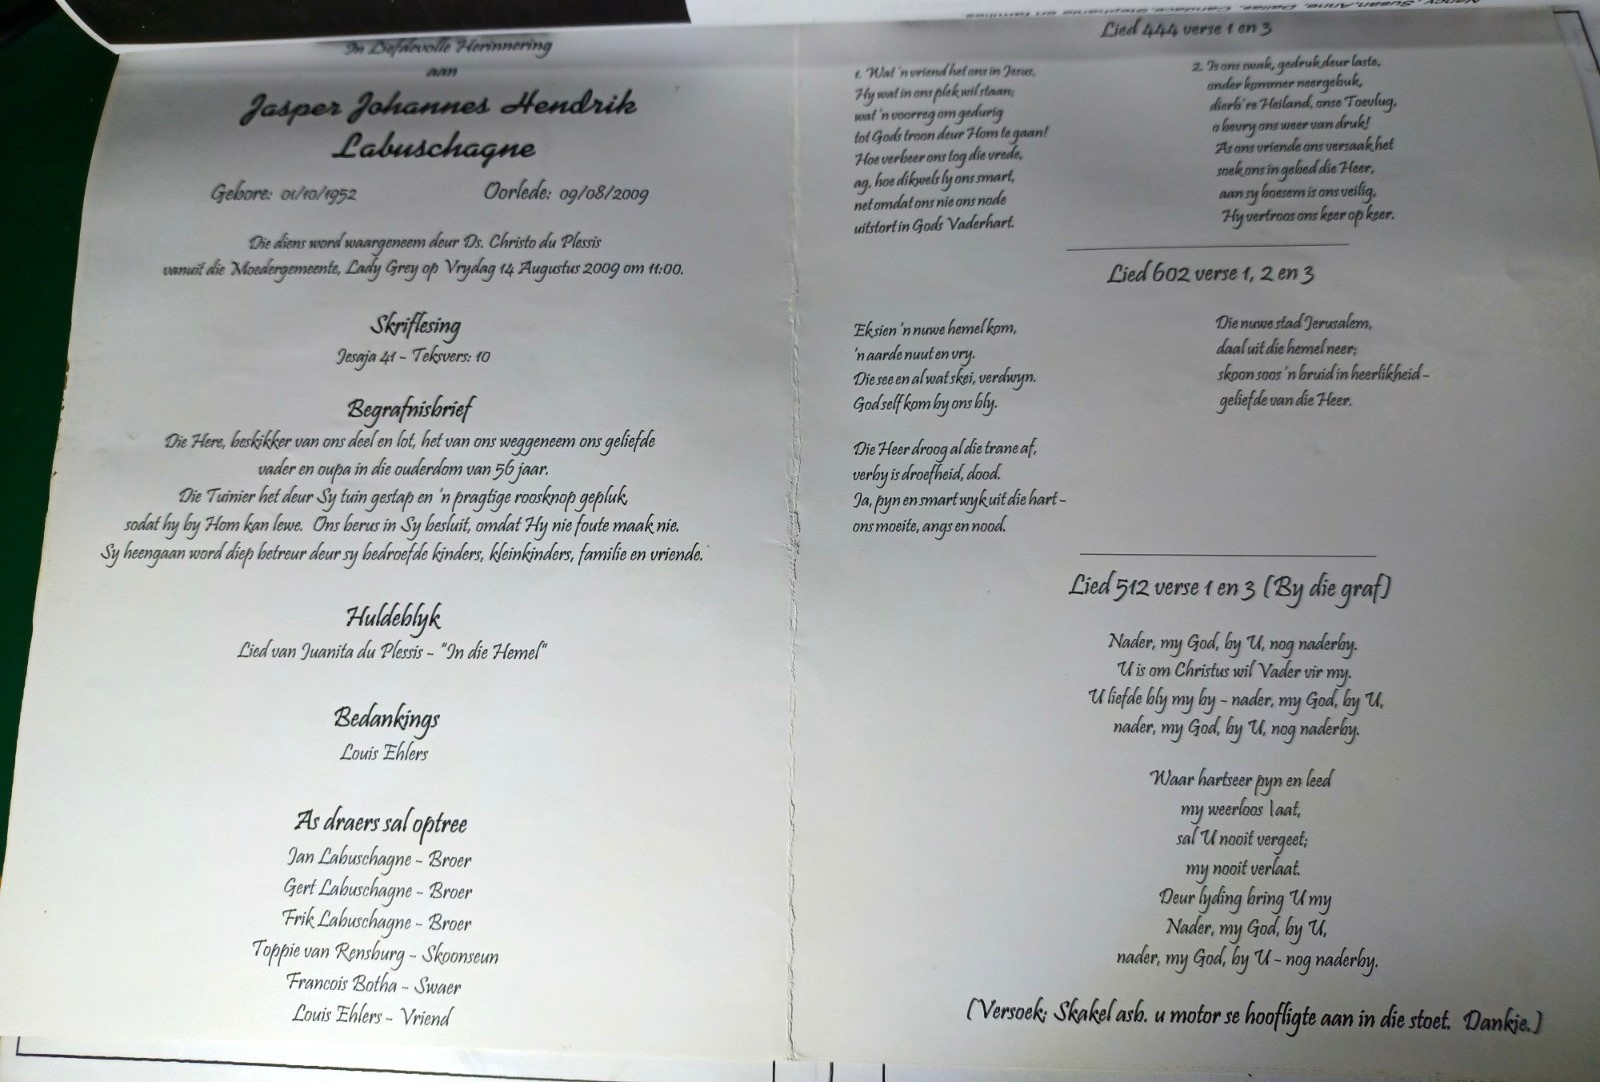 In Liefdevolle Herinnering
aan
Jasper Johannes Hendrik
Labuschagne
Gebore: 01/10/1952 Oorlede: 09/08/2009
Die diens word waargeneem deur Ds. Christo du Plessis
vanuit die Moedergemeente, Lady Grey op Vrydag 14 Augustus 2009 om 11:00.
Skriflesing
Jesaja 41 - Teksvers: 10
Begrafnisbrief
Die Here, beskikker van ons deel en lot, het van ons weggeneem ons geliefde
vader en oupa in die ouderdom van 56 jaar.
Die Tuinier het deur Sy tuin gestap en 'n pragtige roosknop gepluk
sodat hy by Hom kan lewe. Ons berus in Sy besluit, omdat Hy nie foute maak nie.
Sy heengaan word diep betreur deur sy bedroefde kinders, kleinkinders, familie en vriende.
Huldeblyk
Lied van Juanita du Plessis - "In die Hemel"
Bedankings
Louis Ehlers
As draers sal optree
Jan Labuschagne - Broer
Gert Labuschagne - Broer
Frik Labuschagne - Broer
Toppie van Rensburg - Skoonseun
Francois Botha - Swaer
Louis Ehlers - Vriend
Nancy, Susan, Anne, Dallas, Candace, Stephanie en families
Lied 444 verse 1 en 3
1. Wat 'n vriend het ons in Jesus,
Hy wat in ons plek wil staan;
wat 'n voorreg om gedurig
tot Gods troon deur Hom te gaan!
Hoe verbeer ons tog die vrede,
ag, hoe dikwels ly ons smart,
net omdat ons nie ons node
uitstort in Gods Vaderhart.
2. Is ons swak, gedruk deur laste,
onder kommer neergebuk,
dierb're Heiland, onse Toevlug,
o bevry ons weer van druk!
As ons vriende ons versaak het
soek ons in gebed die Heer,
aan sy boesem is ons veilig,
Hy vertroos ons keer op keer.
Lied 602 verse 1, 2 en 3
Ek sien 'n nuwe hemel kom,
'n aarde nuut en vry.
Die see en al wat skei, verdwyn.
God self kom by ons bly.
Die Heer droog al die trane af,
verby is droefheid, dood.
Ja, pyn en smart wyk uit die hart -
ons moeite, angs en nood.
Die nuwe stad Jerusalem,
daal uit die hemel neer;
skoon soos 'n bruid in heerlikheid -
geliefde van die Heer.
Lied 512 verse 1 en 3 (By die graf)
Nader, my God, by U, nog naderby.
U is om Christus wil Vader vir my.
U liefde bly my by - nader, my God, by U,
nader, my God, by U, nog naderby.
Waar hartseer pyn en leed
my weerloos laat,
sal U nooit vergeet;
my nooit verlaat.
Deur lyding bring U my
Nader, my God, by U,
nader, my God, by U - nog naderby.
(Versoek: Skakel asb. u motor se hoofligte aan in die stoet. Dankie.)